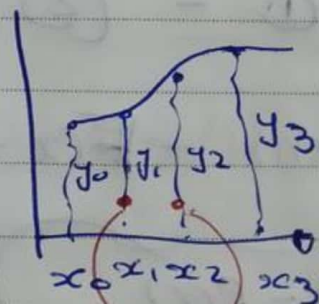 y₀ y₁ y₂ y₃
x₀ x₁ x₂ x₃